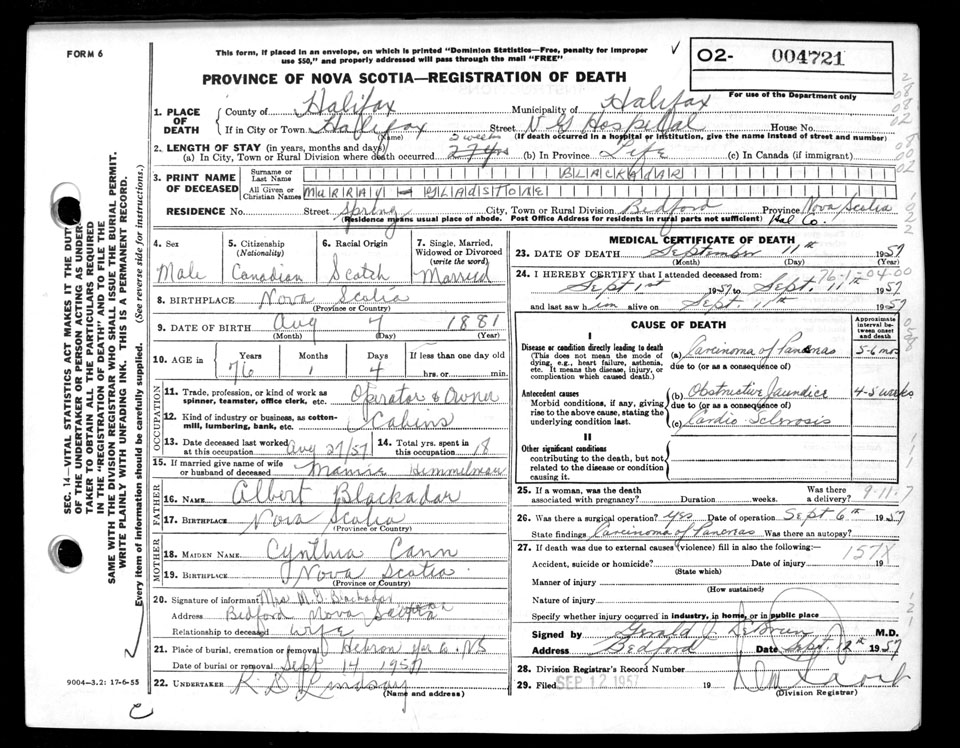 FORM 6
This form, if placed in an envelope, on which is printed "Dominion Statistics—Free, penalty for improper
use $50," and properly addressed will pass through the mail "FREE"
✓
O2- 004721
For use of the Department only
PROVINCE OF NOVA SCOTIA—REGISTRATION OF DEATH
1. PLACE OF DEATH
County of Halifax Municipality of Halifax
If in City or Town Halifax Street V G Hospital House No.
(Name) (If death occurred in a hospital or institution, give the name instead of street and number)
2. LENGTH OF STAY (in years, months and days)
2 weeks
(a) In City, Town or Rural Division where death occurred 27 yrs (b) In Province Life (c) In Canada (if immigrant)
3. PRINT NAME OF DECEASED
Surname or Last Name BLACKADAR
All Given or Christian Names MURRAY - GLADSTONE
RESIDENCE No. Street Spring City, Town or Rural Division Bedford Province Nova Scotia
(Residence means usual place of abode. Post Office Address for residents in rural parts not sufficient) Hal Co.
4. Sex
Male
5. Citizenship (Nationality)
Canadian
6. Racial Origin
Scotch
7. Single, Married, Widowed or Divorced (write the word)
Married
8. BIRTHPLACE Nova Scotia
(Province or Country)
9. DATE OF BIRTH Aug 7 1881
(Month) (Day) (Year)
10. AGE in Years Months Days If less than one day old
76 1 4 hrs. or min.
OCCUPATION
11. Trade, profession, or kind of work as spinner, teamster, office clerk, etc. Operator & Owner
12. Kind of industry or business, as cotton-mill, lumbering, bank, etc. Cabins
13. Date deceased last worked at this occupation Aug 27/57
14. Total yrs. spent in this occupation 18
15. If married give name of wife or husband of deceased Mamie Himmelman
FATHER
16. NAME Albert Blackadar
17. BIRTHPLACE Nova Scotia
(Province or Country)
MOTHER
18. MAIDEN NAME Cynthia Cann
19. BIRTHPLACE Nova Scotia
(Province or Country)
20. Signature of informant Mrs M. G. Blackadar
Address Bedford Nova Scotia
Relationship to deceased wife
21. Place of burial, cremation or removal Hebron Yar Co. NS
Date of burial or removal Sept 14 1957
22. UNDERTAKER R D Lindsay
(Name and address)
9004—3.2: 17-6-55
MEDICAL CERTIFICATE OF DEATH
23. DATE OF DEATH September 11th 1957
(Month) (Day) (Year)
76-1-04-00
24. I HEREBY CERTIFY that I attended deceased from:
Sept 1st 1957 to Sept. 11th 1957
and last saw him alive on Sept. 11th 1957
CAUSE OF DEATH
Approximate interval between onset and death
I
Disease or condition directly leading to death
(This does not mean the mode of dying, e.g., heart failure, asthenia, etc. It means the disease, injury, or complication which caused death.)
(a) Carcinoma of Pancreas 5-6 mos
due to (or as a consequence of)
Antecedent causes
Morbid conditions, if any, giving rise to the above cause, stating the underlying condition last.
(b) Obstructive Jaundice 4-5 weeks
due to (or as a consequence of)
(c) Cardio Sclerosis
II
Other significant conditions
contributing to the death, but not related to the disease or condition causing it.
25. If a woman, was the death associated with pregnancy? Duration weeks. Was there a delivery?
9-11-7
26. Was there a surgical operation? Yes Date of operation Sept 6th 1957
State findings Carcinoma of Pancreas Was there an autopsy?
27. If death was due to external causes (violence) fill in also the following:—
157X
Accident, suicide or homicide? Date of injury 19
(State which)
Manner of injury
(How sustained)
Nature of injury
Specify whether injury occurred in industry, in home, or in public place
Signed by Gerald J. M.D.
Address Bedford Date Sept. 12th 1957
28. Division Registrar's Record Number
29. Filed SEP 12 1957 19
(Division Registrar)
SEC. 14—VITAL STATISTICS ACT MAKES IT THE DUTY
OF THE UNDERTAKER OR PERSON ACTING AS UNDER-
TAKER TO OBTAIN ALL THE PARTICULARS REQUIRED
IN THE "REGISTRATION OF DEATH" AND TO FILE THE
SAME WITH THE DIVISION REGISTRAR WHO SHALL ISSUE THE BURIAL PERMIT.
WRITE PLAINLY WITH UNFADING INK. THIS IS A PERMANENT RECORD.
Every item of information should be carefully supplied. (See reverse side for instructions.)